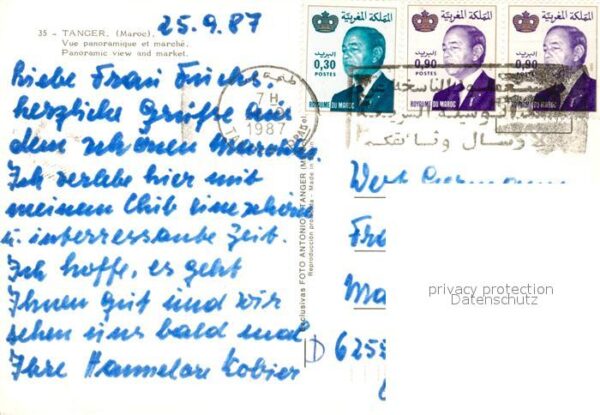 25.9.87
35 - TANGER. (Maroc).
Vue panoramique et marché.
Panoramic view and market.
Liebe Frau Fuchs.
herzliche Grüße aus
dem schönen Marokko.
Ich verlebe hier mit
meinem Club eine schöne
u. interressante Zeit.
Ich hoffe, es geht
Ihnen gut und wir
sehen uns bald mal
Ihre Hannelore Kobier
Exclusivas FOTO ANTONIO - TANGER (Maroc)
Reproducción prohibida - Made in
المملكة المغربية
البريد
0,30
POSTES
ROYAUME DU MAROC
المملكة المغربية
البريد
0,90
POSTES
ROYAUME DU MAROC
المملكة المغربية
البريد
0,90
POSTES
ROYAUME DU MAROC
7H
1987
الوسيلة
لارسال وثائقكم
Fra
Ma
D 6255
privacy protection
Datenschutz